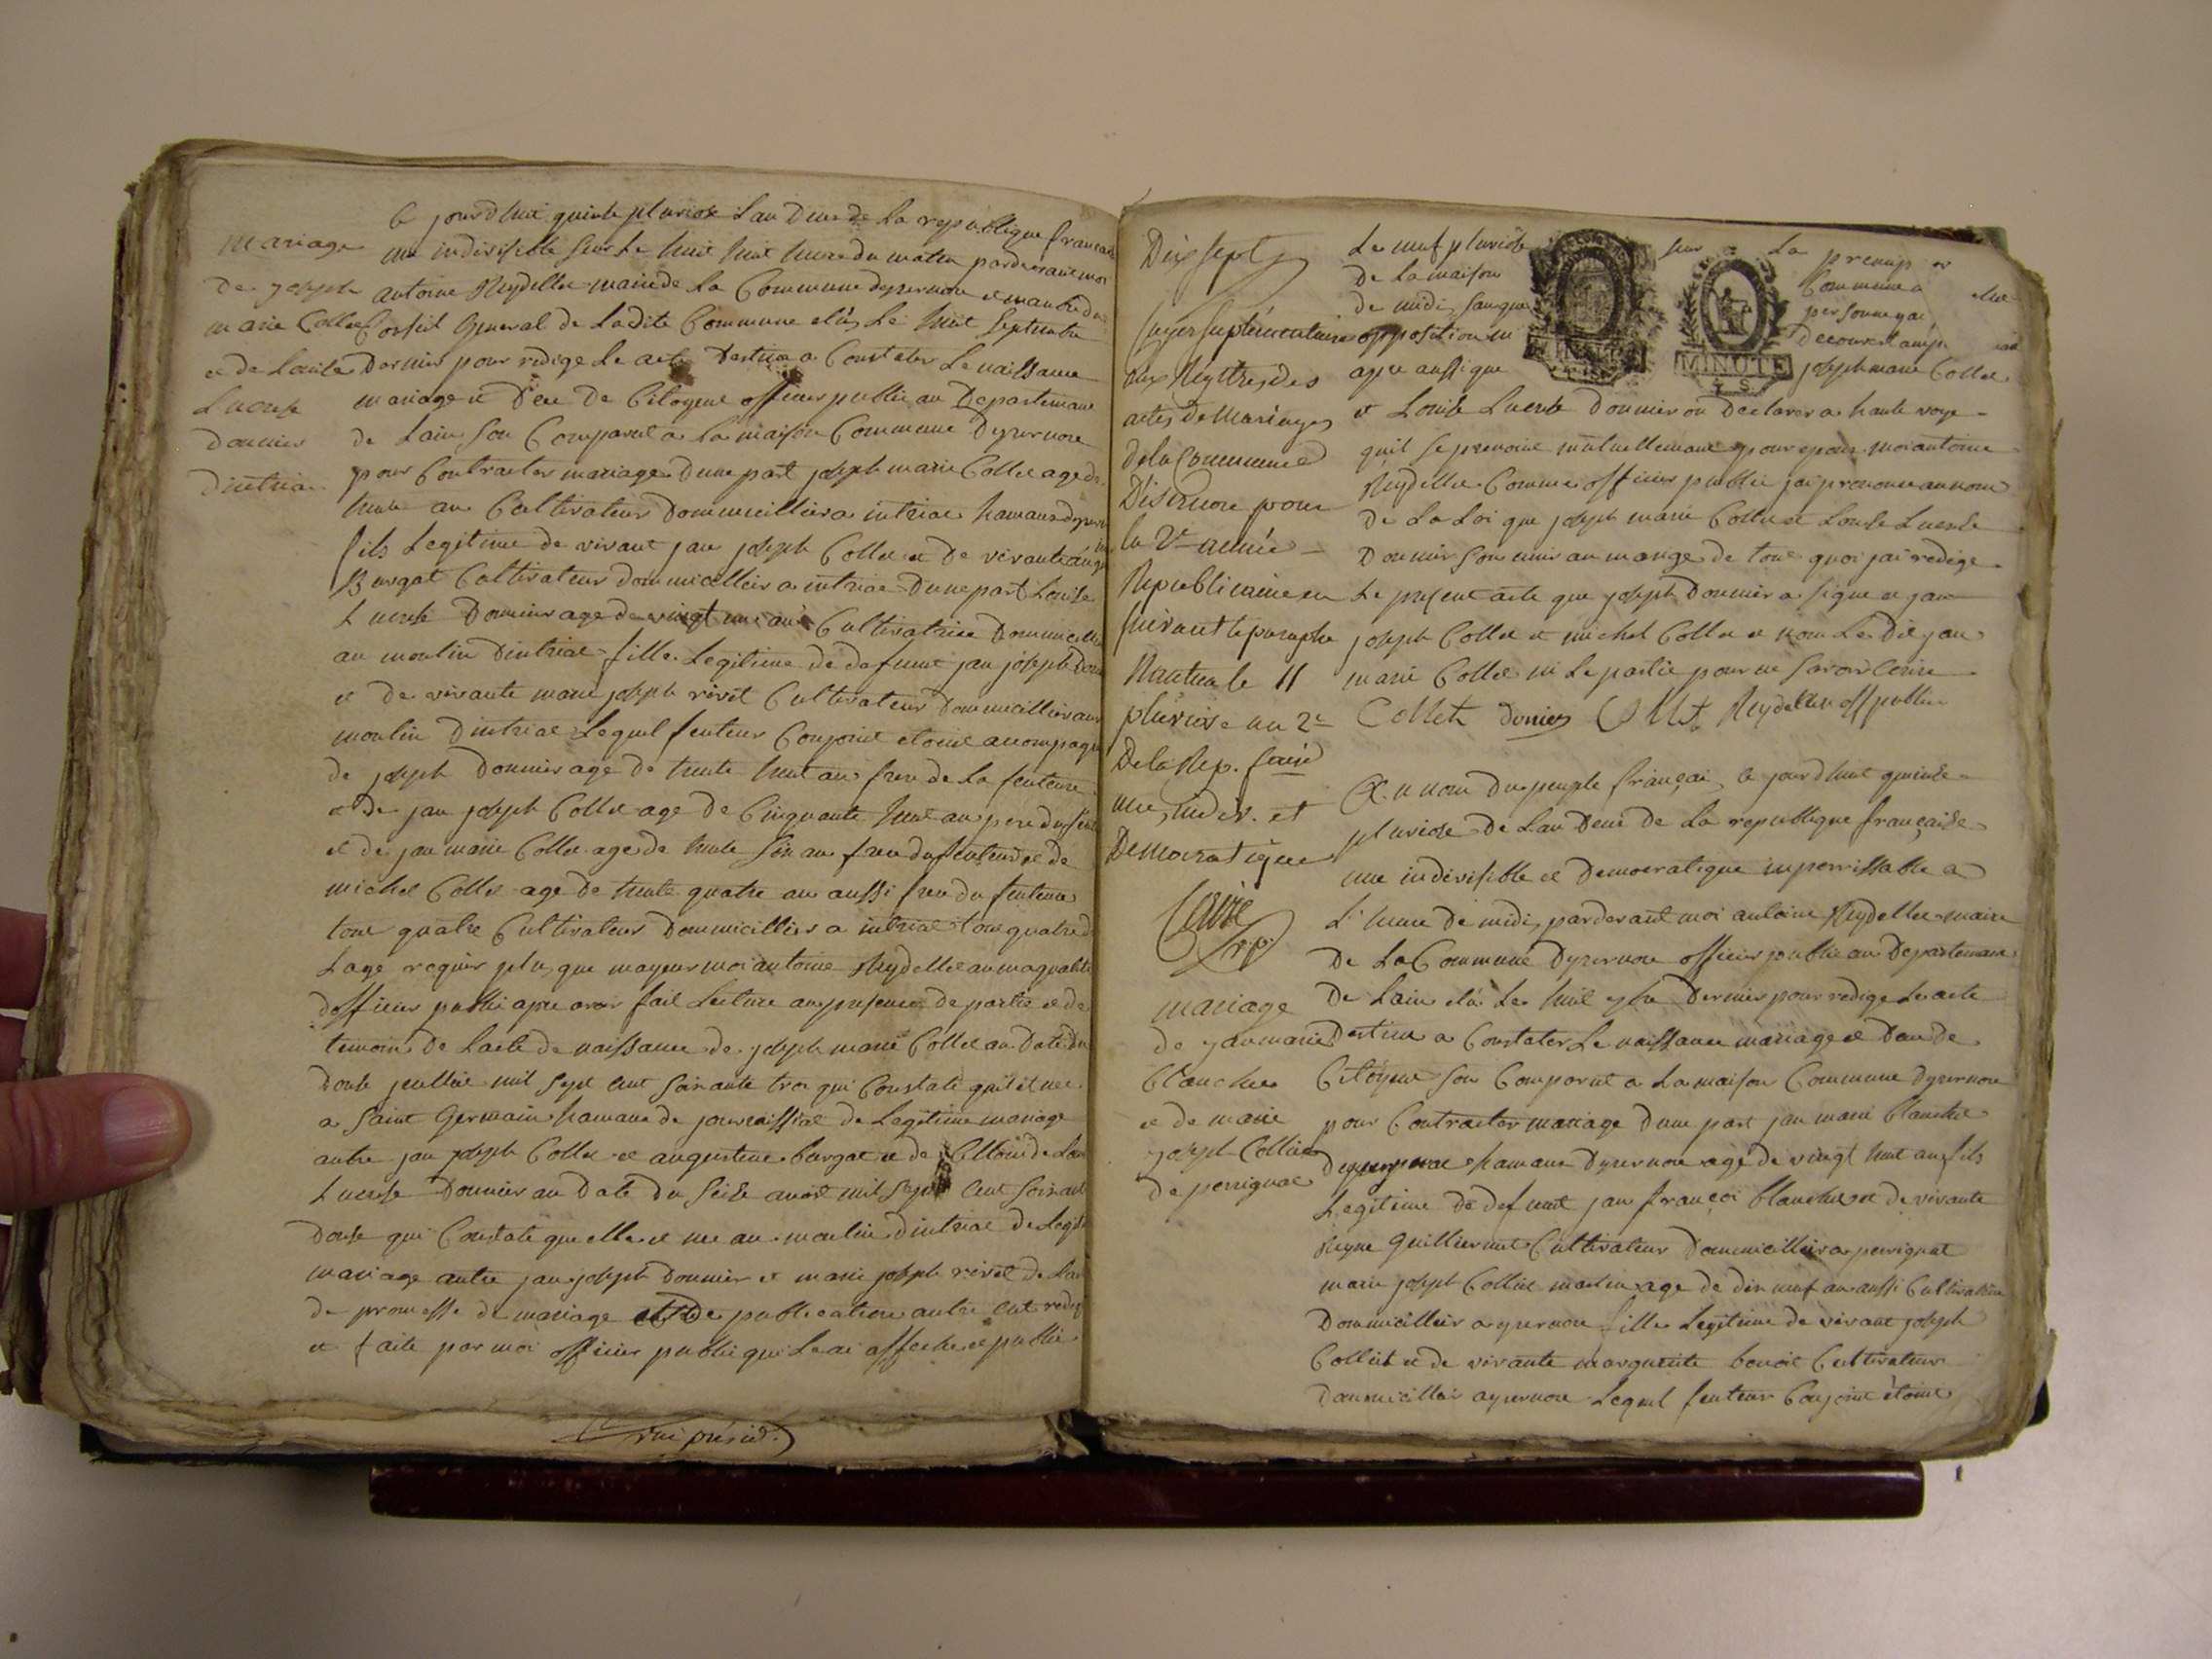 mariage
de joseph
marie Collet
et de Louise
Lucresse
Donnier
dintria
Ce jourdhui quinse pluviose Lan Deus de La republique francaise
une indivisible sur Le huit huit heure du matin pardevant moi
antoine Reydellet maire de La Commune dyzernore et manbre du
Consiel General de Ladite Commune elû Le huit Septenbre
Dernier pour redige Le acte Destine a Constater Le naissance
mariage et Dece de Citoyene officier public au Departemant
de Lain son Comparut a La maison Commune Dyzernore
pour Contracter mariage dune part joseph marie Collet age de
trente an Cultivateur Dommicillier a intriac hamaux dyzernore
fils Legitime de vivant jan joseph Collet et De vivante
Burgat Cultivateur dommicillier a intriac Dune part Louise
Lucresse Donnier age de vingt une an Cultivatrice Dommicillie
au moulin Dintriac fille Legitime de defunt jan joseph Donnier
et de vivante marie joseph rivet Cultivateur Dommicillier aux
moulin dintriac Lequel feuteur Conjoint etoint acompagne
de joseph Donnier age de trente huit an frere de La feuteure
et de jan joseph Collet age de Cinquante huit an pere du
et de jan marie Collet age de trente six an frere du feuteur et de
michel Collet age de trente quatre an aussi frere du feuteur
tout quatre Cultivateur Dommicillier a intriac tout quatre d
Lage requis plus que mayeur moi antoine Reydellet an maqualite
dofficier public apre avoir fait Lecture an presence de partie et de
temoin De Lacte de naissance de joseph marie Collet an Date du
Douse juillet mil Sept cent Soixante troi qui Constate quil et nee
a Saint Germain hamaux de de Legitime mariage
antre jan joseph Collet et angustine burgat et de Cellui de Louise
Lucresse Donnier an Date du Seise avoit mil Sept Cent Soixante
Douse qui Constate que elle et nee au moulin dintriac de Legitime
mariage antre jan joseph Donnier et marie joseph rivet de Lacte
de promesse de mariage et de publication antre eut redige
et faite par moi officier public qui Le ai affiche et publie
Dix Sept
suplementaire
aux Regitres des
actes de Mariages
de la Commune
Disernore pour
la 2e année
Republicaine en
suivant le paraphe
Nantua le 11
pluviose an 2e
De la Rep. fraise
une, indiv. et
Democratique
Le neuf pluviôse sur La
De La maison Commune a
de midi, sanque personne
opposition ni
apre aussi que joseph marie Collet
et Louise Lucresse Donnier on Declarer a haute voye
quil Se prenoint mutuellemant pour epoux moi antoine
Reydellet Comme officier public jai prononce au nom
De La Loi que joseph marie Collet et Louise Lucresse
Donnier son unir an mariage de tout quoi jai redige
Le present acte que joseph Donnier a signe et jan
joseph Collet et michel Collet et nom Le dit jan
marie Collet ni Le partie pour ne Savoir Cerire
Collet donier Collet Reydellet off public
mariage
de jan marie
blanchet
et de marie
joseph Collet
de perignac
Au nom du peuple françai, Ce jourdhuit quinse
pluviose De Lan Deus de La republique française
une indivisible et Democratique imperrissable a
L'heure de midi, pardevant moi antoine Reydellet maire
De La Commune Dyzernore officier public au Departemant
De Lain elû Le huit 7bre Dernier pour redige Le acte
destine a Constater Le naissance mariage et Dece de
Citoyene son Comparut a La maison Commune dyzernore
pour Contracter mariage dune part jan marie blanchet
hamaux Dyzernore age de vingt huit an fils
Legitime de defunt jan françoi blanchet et de vivante
Reyne Guilliermet Cultivateur Dommicillier a perrignat
marie joseph Collet age de dix neuf an aussi Cultivatrice
Dommicillier ayzernore fille Legitime de vivant joseph
Collet et de vivante marguerite benoit Cultivateur
dommicillier ayzernore Lequel feuteur Conjoint etoint
MINUTE
4. S.